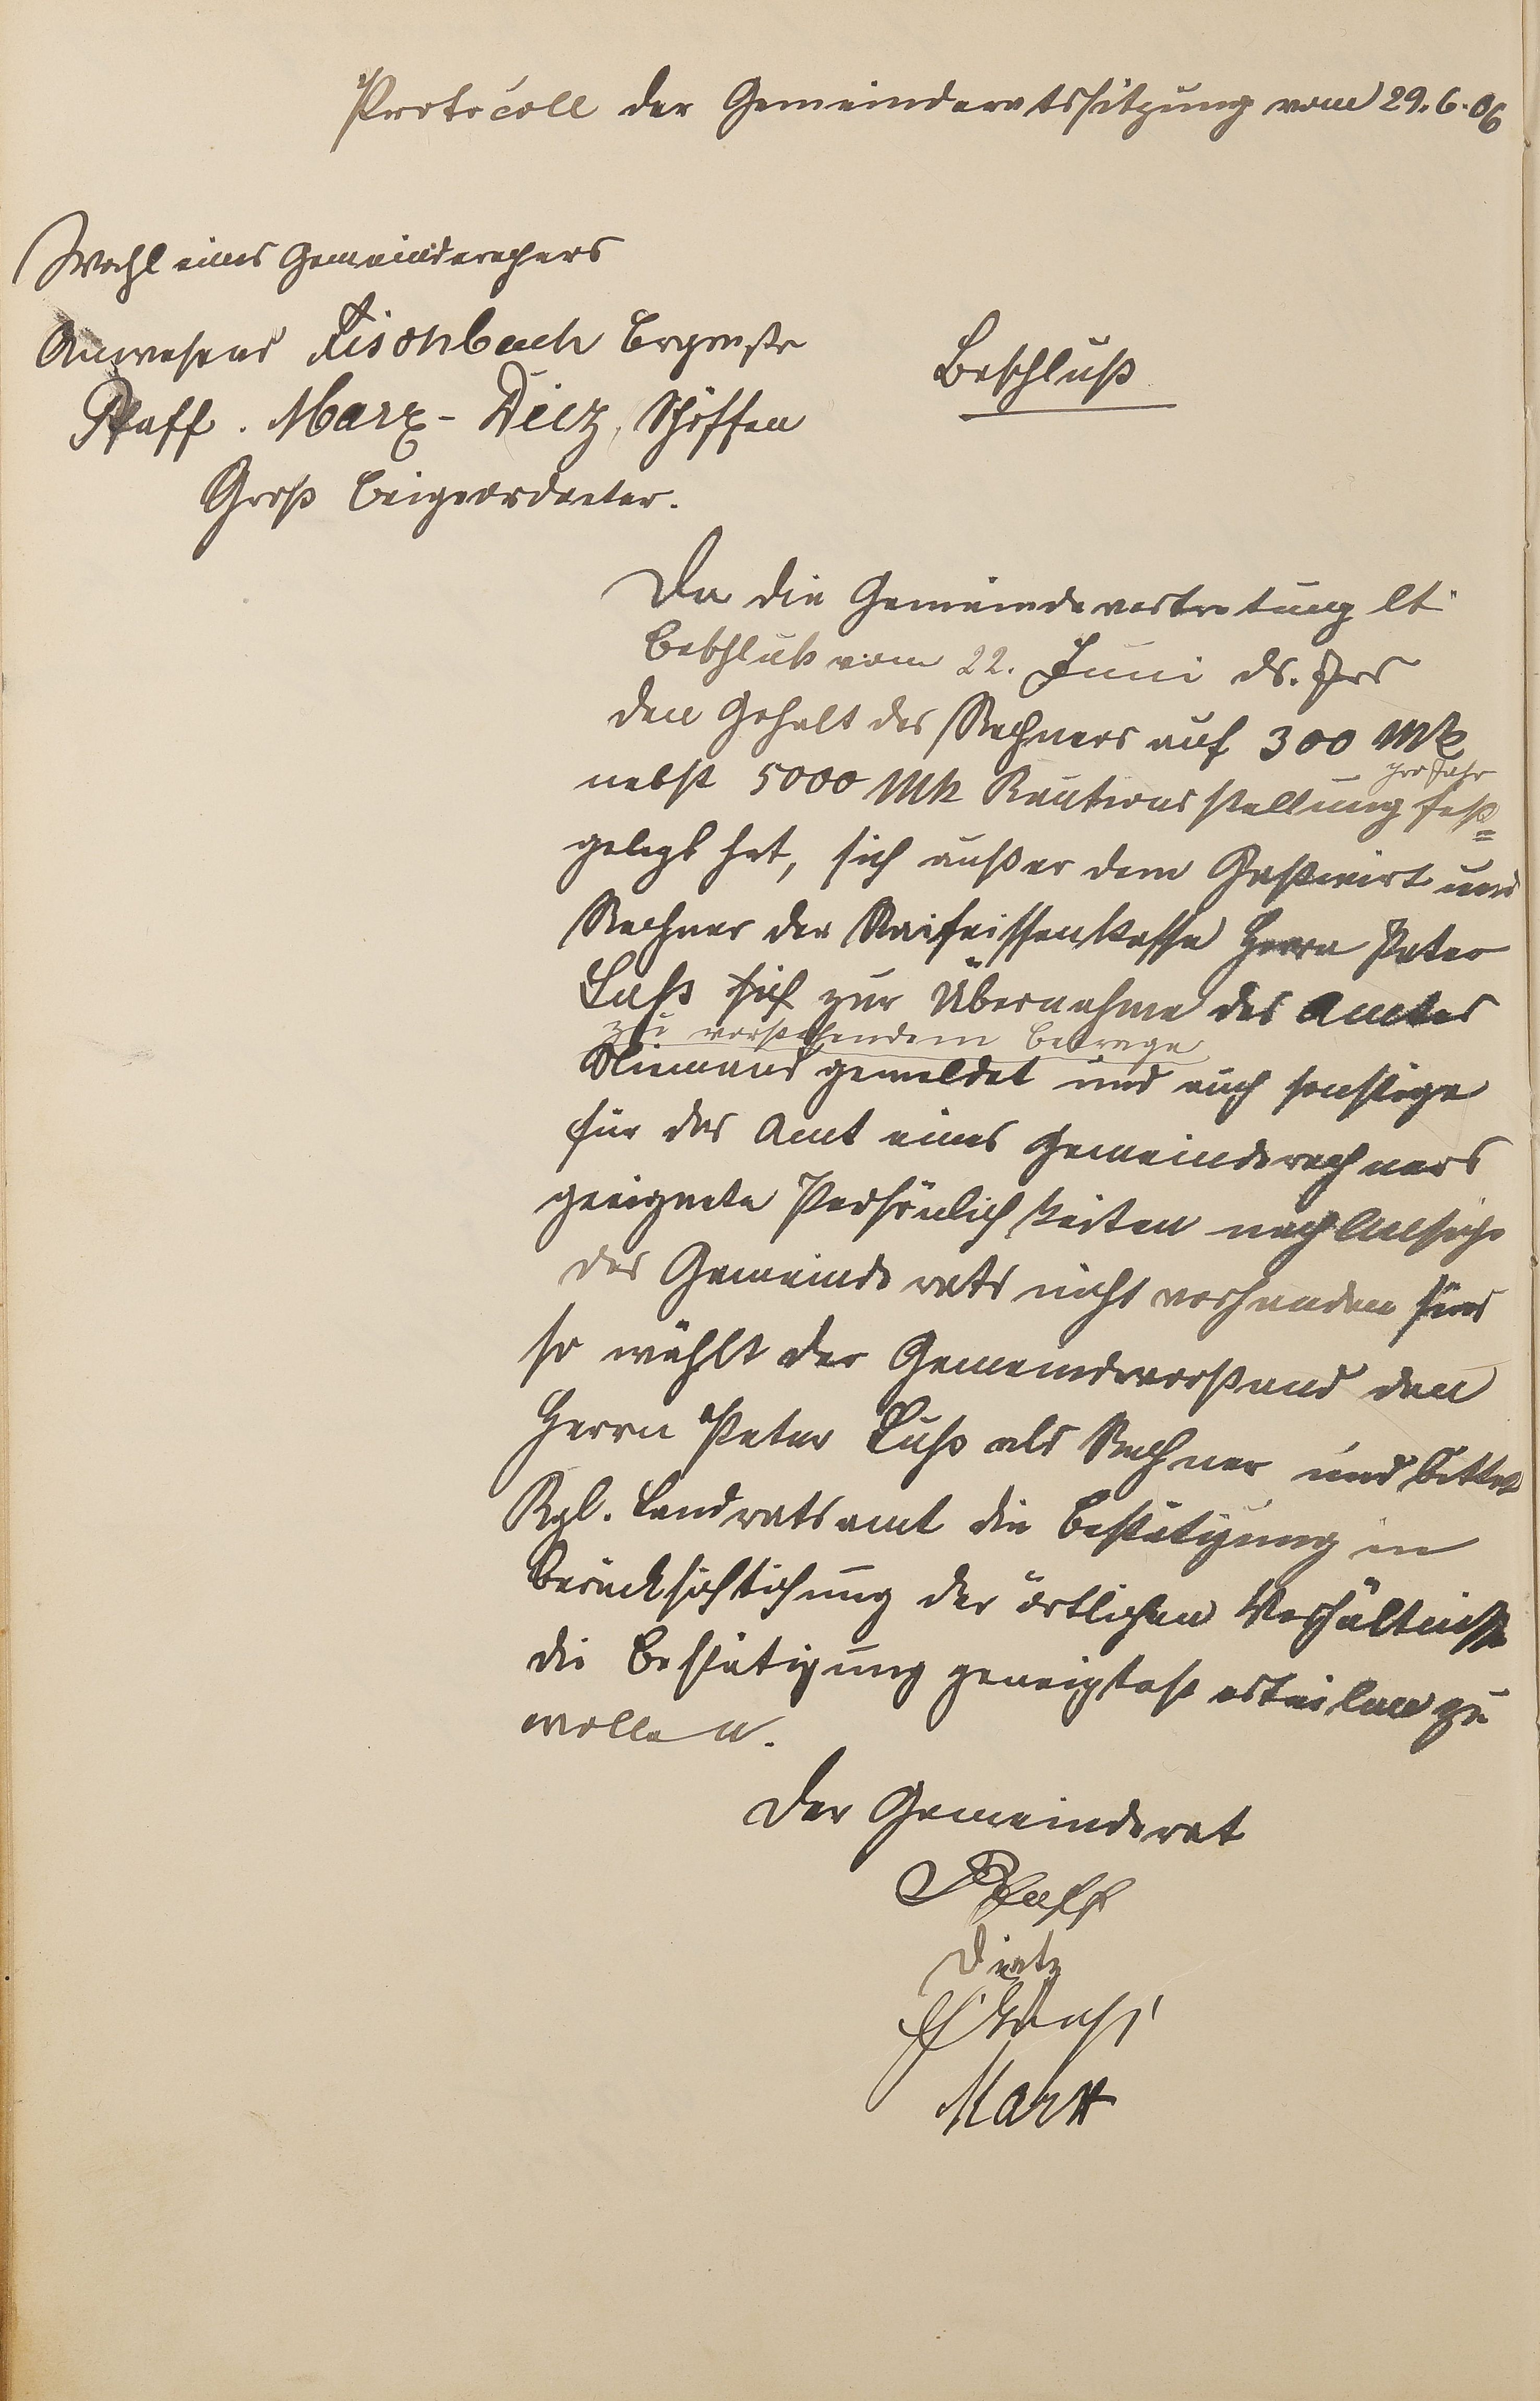 Protocoll der Gemeinderatssitzung vom 29.6.06
Wahl eines Gemeinderechers
Anwesend Fischbach Brgmstr
Pfaff. Marx - Diez, Schöffen
Groß Beigeordneter.
Beschluß
Da die Gemeindevertretung lt
Beschluß vom 22. Juni ds. Jrs
den Gehalt des Rechners auf 300 Mk
pro Jahr
nebst 5000 Mk Kautionsstellung fest=
gelegt hat, sich außer dem Gastwirt und
Rechner der Raifeissenkasse Herrn Peter
Luß sich zur Übernahme des Amtes
zu vorstehendem Betrage
Niemand gemeldet und auch sonstige
für das Amt eines Gemeinderechners
geeignete Persönlichkeiten nach Ansicht
des Gemeinderats nicht vorhanden sind
so wählt der Gemeindevorstand den
Herrn Peter Luß als Rechner und bittet
Kgl. Landratsamt die Bestätigung in
Berücksichtichung der örtlichen Verhältnisse
die Bestätigung geneigtest erteilen zu
wollen.
Der Gemeinderat
Pfaff
Dietz
Marx